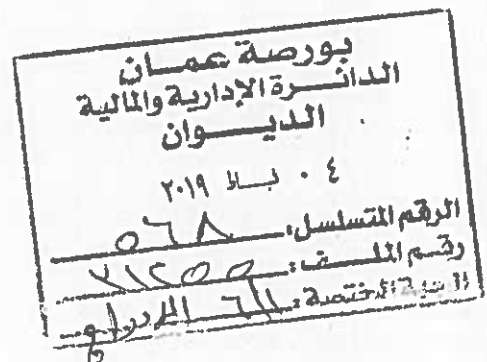 بورصة عمان
الدائرة الإدارية والمالية
الديوان
٠٤ شباط ٢٠١٩
الرقم المتسلسل: ٥٦٨
رقم الملف:
الجهة المختصة: